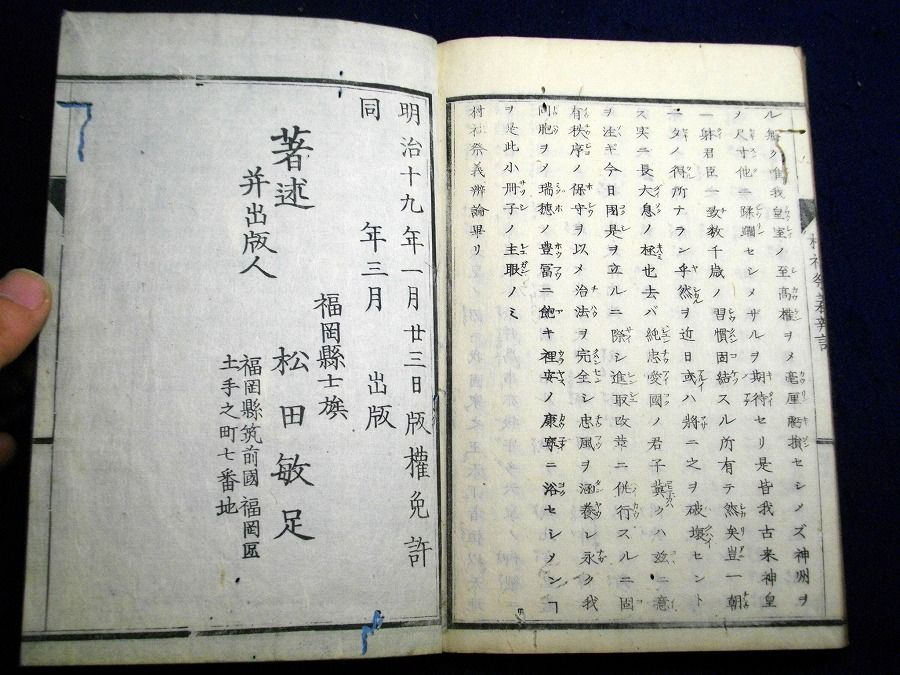 ル無ク唯我皇室ノ至高權ヲメ毫厘虧損セシメズ神州ヲ
ノ尺寸他ニ蹂躙セシメザルヲ期待セリ是皆我古来神皇
一躰君臣一致数千歳ノ習慣固結スル所有テ然矣豈一朝
一夕ノ得所ナラン乎然ヲ近日或ハ將ニ之ヲ破壊セント
ス実ニ長大息ノ極也去バ純忠愛國ノ君子冀クハ玆ニ意
ヲ注ギ今日國是ヲ立ルニ際シ進取改革ニ併行スルニ固
有秩序ノ保守ヲ以メ治法ヲ完全シ忠風ヲ涵養シ永ク我
同胞ヲノ瑞穂ノ豊冨ニ飽キ裡安ノ康寧ニ浴セシメン
ヲ是此小冊子ノ主眼ノミ
村社祭義辨論畢リ
明治十九年一月廿三日版權免許
同年三月出版
福岡縣士族
著述并出版人
松田敏足
福岡縣筑前國福岡區
土手之町七番地